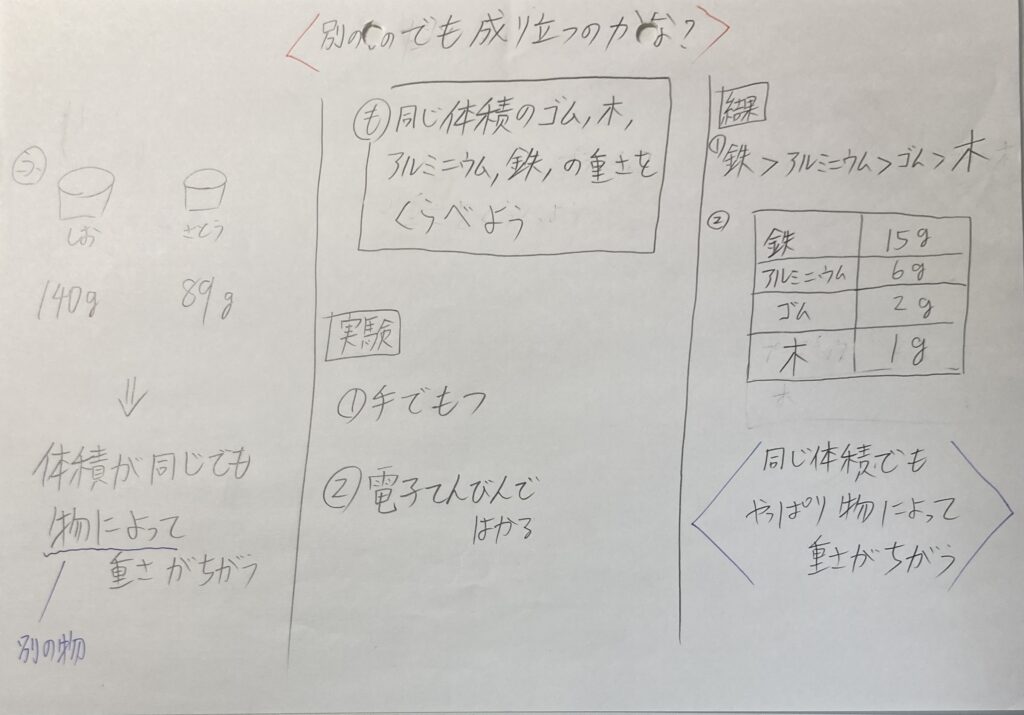 〈別のものでも成り立つのかな?〉
ふ
しお
さとう
140g
89g
⇓
体積が同じでも
物によって
重さがちがう
別の物
も 同じ体積のゴム,木,
アルミニウム,鉄,の重さを
くらべよう
実験
①手でもつ
②電子てんびんで
はかる
結果
①鉄>アルミニウム>ゴム>木
②
鉄 15g
アルミニウム 6g
ゴム 2g
木 1g
同じ体積でも
やっぱり物によって
重さがちがう